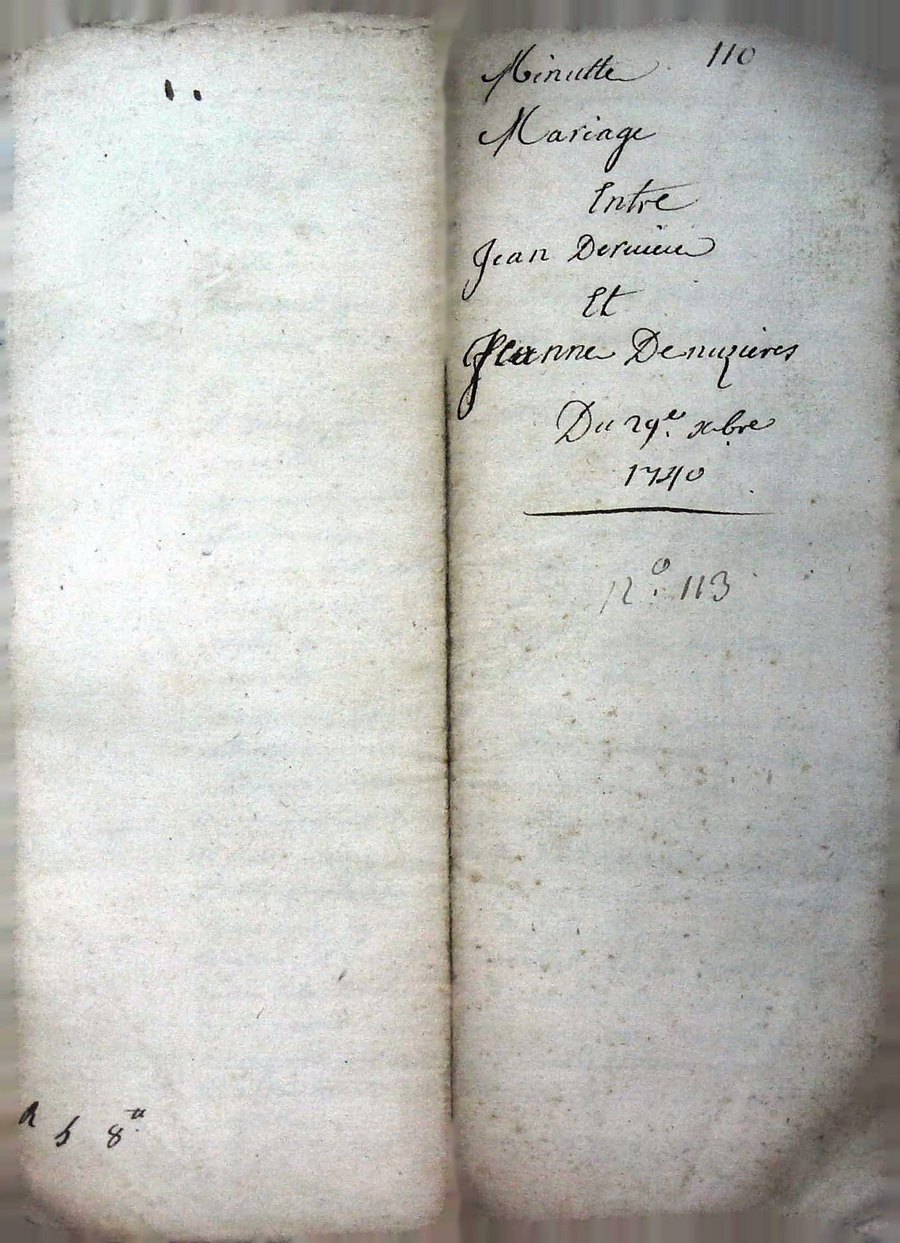 Minutte 110
Mariage
Entre
Jean
Et
Jeanne Denuzières
Du 29.e xbre
1740
N.° 113
8.a